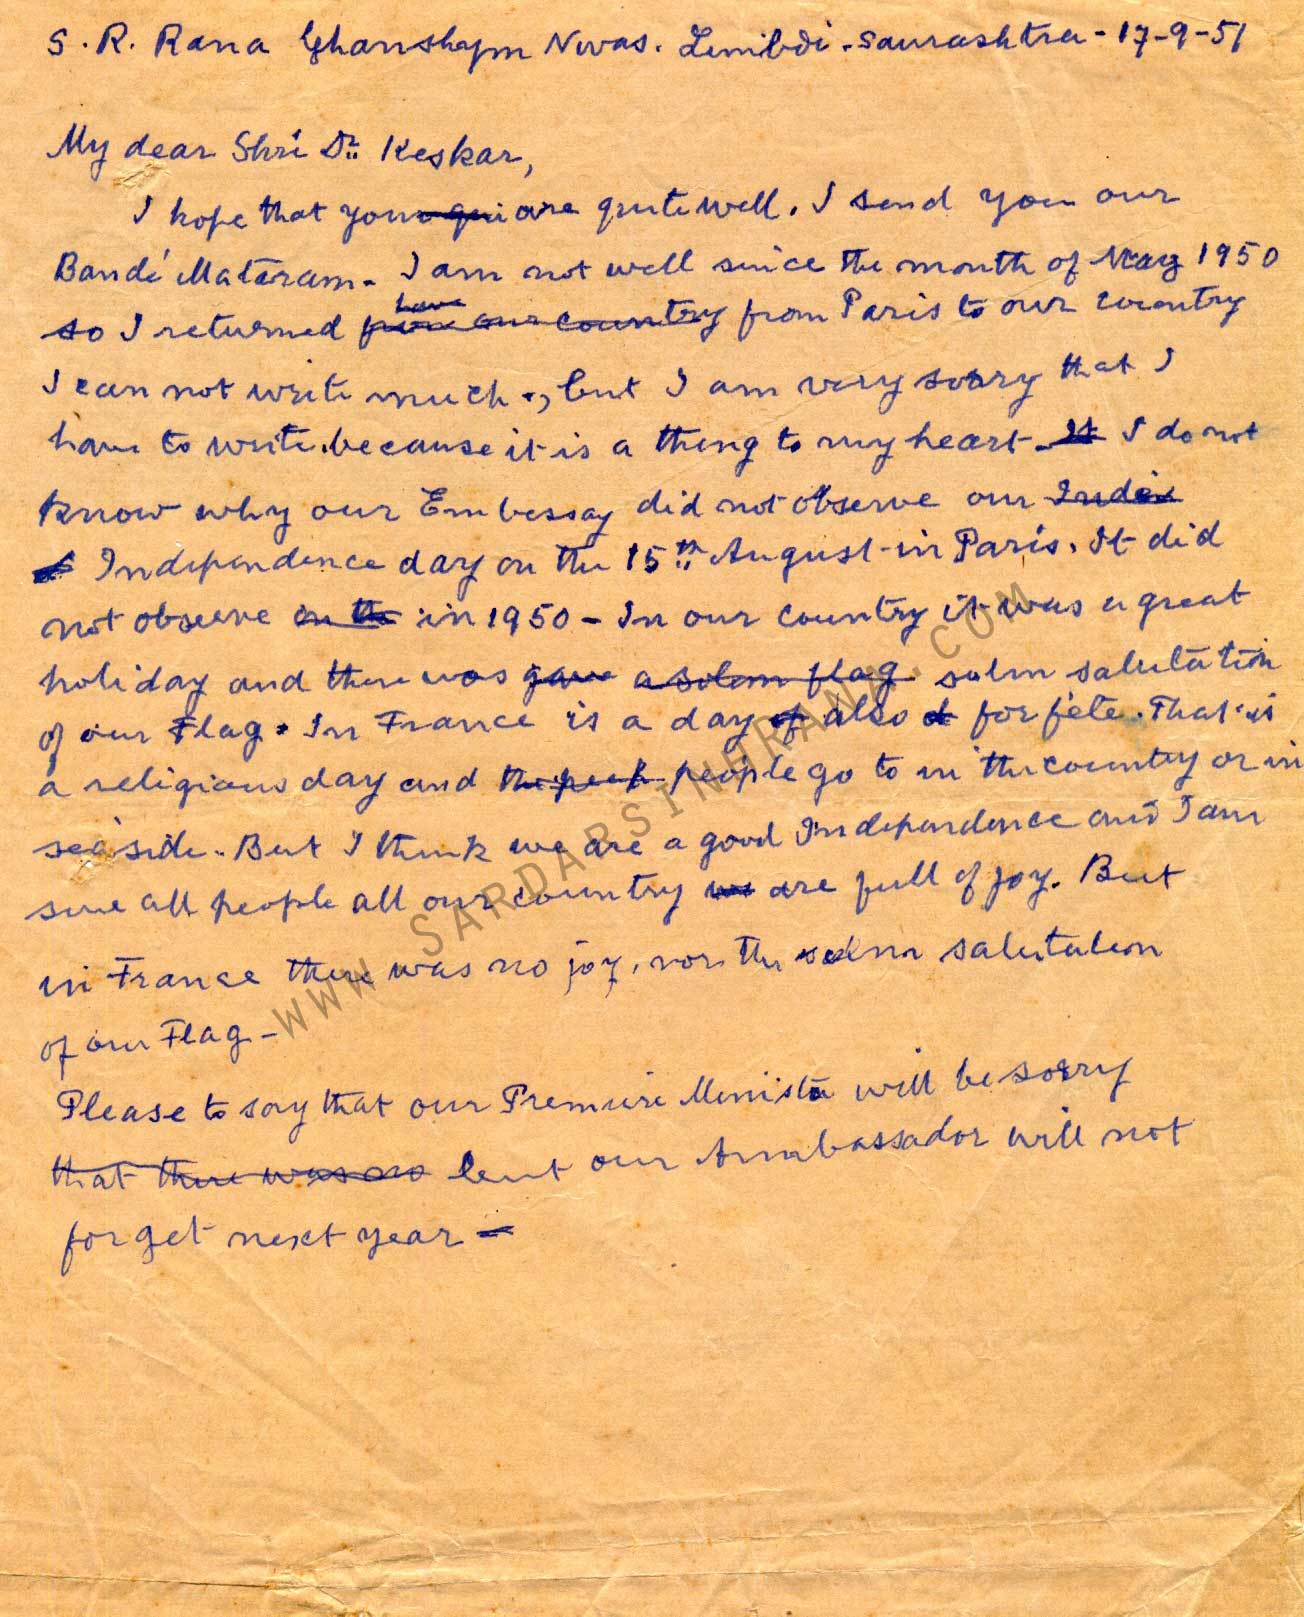 S. R. Rana Ghanshyam Nivas. Limbdi. Saurashtra - 17-9-51
My dear Shri Dr. Keskar,
I hope that you are quite well. I send you our
Bandé Mataram. I am not well since the month of May 1950
so I returned have our country from Paris to our country
I can not write much., but I am very sorry that I
have to write. because it is a thing to my heart - It I do not
know why our Embessay did not observe our Indei
Independence day on the 15th August in Paris. It did
not observe on the in 1950 - In our country it was a great
holiday and there was gave a solem flag solm salutation
of our Flag. In France is a day of also for fête. That is
a religious day and the peop people go to in the country or in
sea side. But I think we are a good Independence and I am
sure all people all our country are full of joy. But
in France there was no joy, nor the solm salutation
of our Flag -
Please to say that our Premiere Minister will be sorry
that there was no but our Ambassador will not
forget next year -
WWW.SARDARSINHRANA.COM